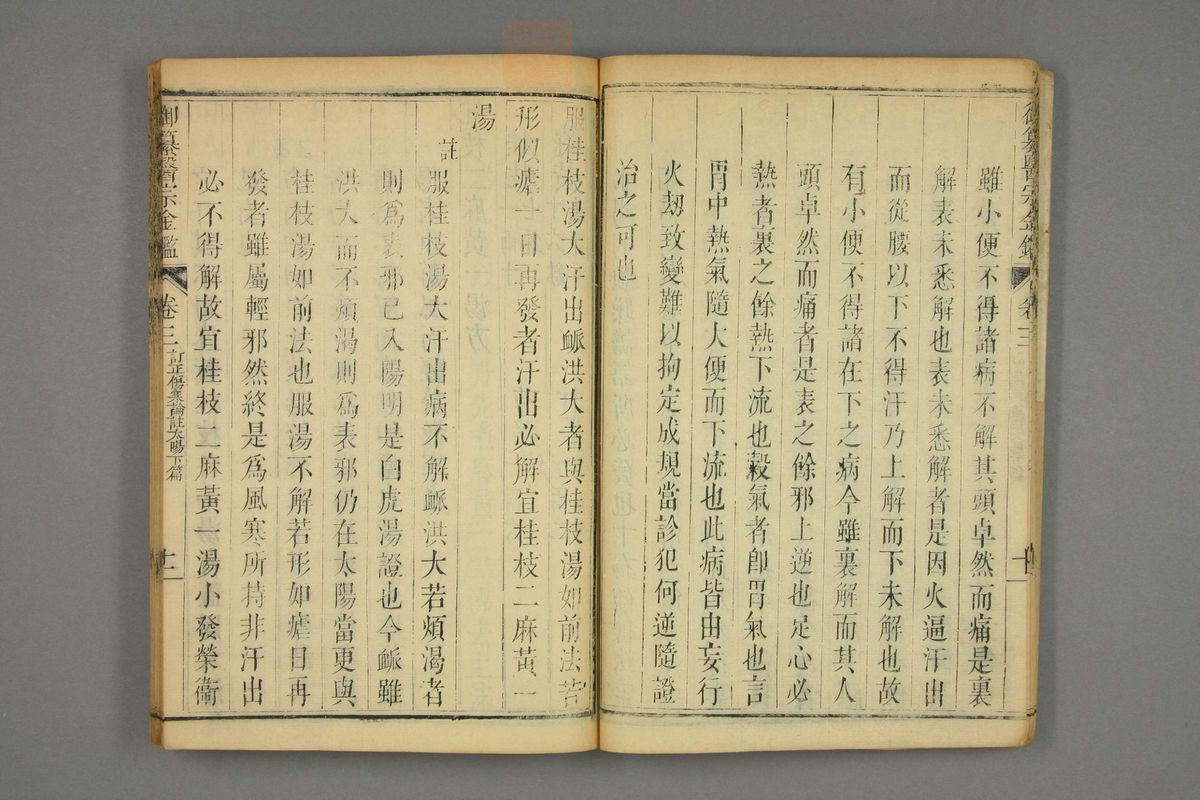 雖小便不得諸病不解其頭卓然而痛是裏
解表未悉解也表未悉解者是因火逼汗出
而從腰以下不得汗乃上解而下未解也故
有小便不得諸在下之病今雖裏解而其人
頭卓然而痛者是表之餘邪上逆也足心必
熱者裏之餘熱下流也穀氣者卽胃氣也言
胃中熱氣隨大便而下流也此病皆由妄行
火劫致變難以拘定成規當診犯何逆隨證
治之可也
服桂枝湯大汗出脈洪大者與桂枝湯如前法若
形似瘧一日再發者汗出必解宜桂枝二麻黃一
湯
註 服桂枝湯大汗出病不解脈洪大若煩渴者
則爲表邪已入陽明是白虎湯證也今脈雖
洪大而不煩渴則爲表邪仍在太陽當更與
桂枝湯如前法也服湯不解若形如瘧日再
發者雖屬輕邪然終是爲風寒所持非汗出
必不得解故宜桂枝二麻黃一湯小發榮衞
御纂醫宗金鑑 卷三 訂正傷寒論註太陽下篇 十一